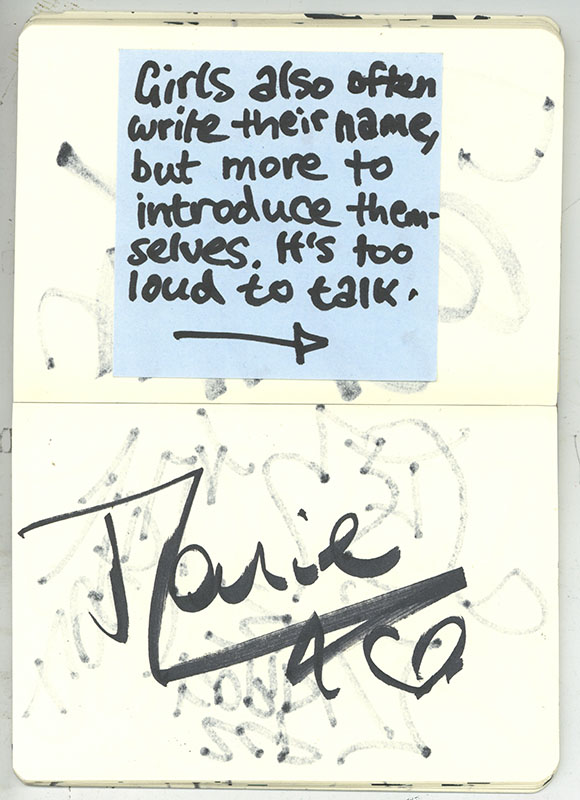 Girls also often
write their name,
but more to
introduce them-
selves. It's too
loud to talk.
Marie